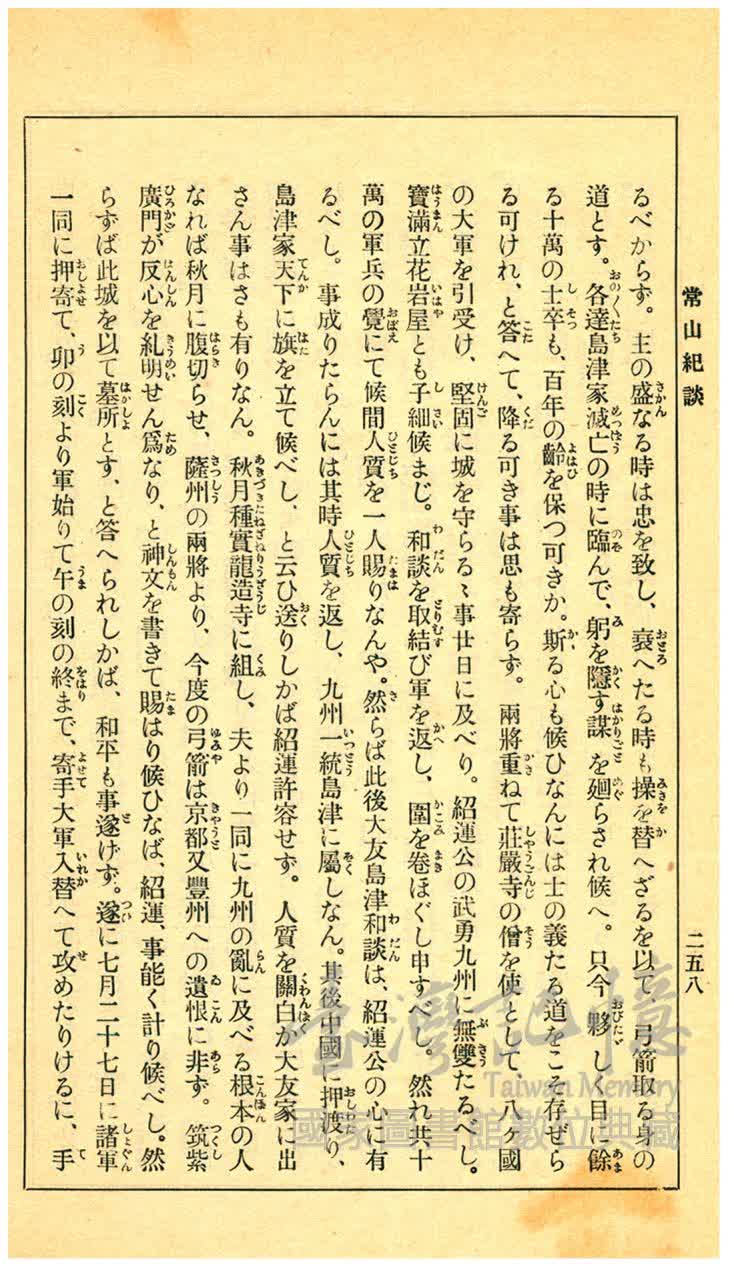 常山紀談
二五八
るべからず。主の盛なる時は忠を致し、衰へたる時も操を替へざるを以て、弓箭取る身の
道とす。各達島津家滅亡の時に臨んで、躬を隱す謀を廻らされ候へ。只今夥しく目に餘
る十萬の士卒も、百年の齡を保つ可きか。斯る心も候ひなんには士の義たる道をこそ存ぜら
る可けれ、と答へて、降る可き事は思も寄らず。兩將重ねて莊嚴寺の僧を使として、八ヶ國
の大軍を引受け、堅固に城を守らるゝ事廿日に及べり。紹運公の武勇九州に無雙たるべし。
寶滿立花岩屋とも子細候まじ。和談を取結び軍を返し、圍を卷ほぐし申すべし。然れ共十
萬の軍兵の覺にて候間人質を一人賜りなんや。然らば此後大友島津和談は、紹運公の心に有
るべし。事成りたらんには其時人質を返し、九州一統島津に屬しなん。其後中國に押渡り、
島津家天下に旗を立て候べし、と云ひ送りしかば紹運許容せず。人質を關白か大友家に出
さん事はさも有りなん。秋月種實龍造寺に組し、夫より一同に九州の亂に及べる根本の人
なれば秋月に腹切らせ、薩州の兩將より、今度の弓箭は京都又豐州への遺恨に非ず。筑紫
廣門が反心を糺明せん爲なり、と神文を書きて賜はり候ひなば、紹運、事能く計り候べし。然
らずば此城を以て墓所とす、と答へられしかば、和平も事遂げず。遂に七月二十七日に諸軍
一同に押寄て、卯の刻より軍始りて午の刻の終まで、寄手大軍入替へて攻めたりけるに、手
臺灣記憶
Taiwan Memory
國家圖書館數位典藏